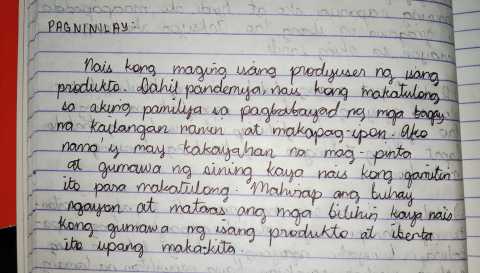 PAGNINILAY:
Nais kong maging isang prodyuser ng isang
produkto. Dahil pandemya, nais kong makatulong
sa aking pamilya sa pagbabayad ng mga bagay
na kailangan namin at makapag-ipon. Ako
nama'y may kakayahan na mag-pinta
at gumawa ng sining kaya nais kong gamitin
ito para makatulong. Mahirap ang buhay
ngayon at mataas ang mga bilihin kaya nais
kong gumawa ng isang produkto at ibenta
ito upang maka-kita.